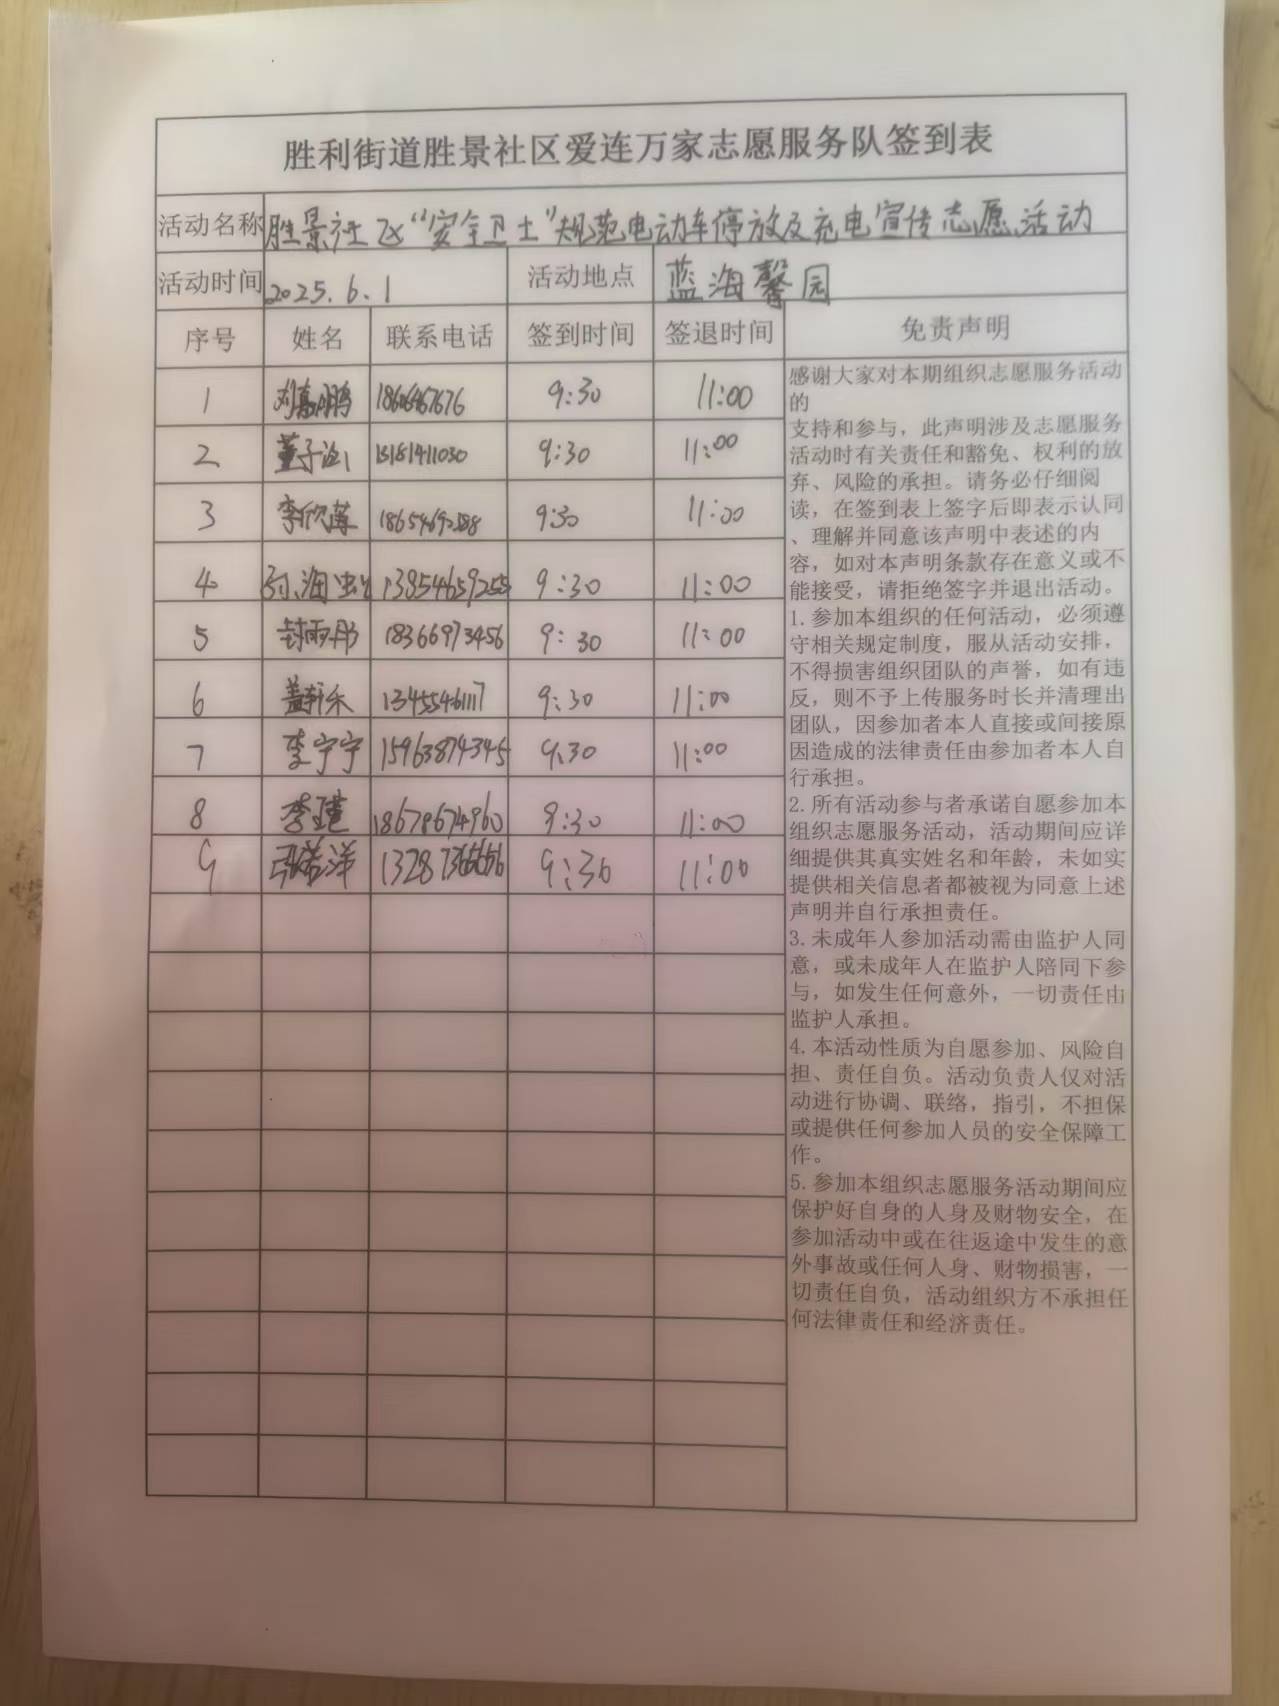 胜利街道胜景社区爱连万家志愿服务队签到表
活动名称 胜景社区“安全卫士”规范电动车停放及充电宣传志愿活动
活动时间 2025.6.1 活动地点 蓝海馨园
序号 姓名 联系电话 签到时间 签退时间 免责声明
1 9:30 11:00
2 13181411030 9:30 11:00
3 9:30 11:00
4 13854659255 9:30 11:00
5 封雨彤 18366973456 9:30 11:00
6 盖轩禾 13455461117 9:30 11:00
7 李宁宁 15963874345 9:30 11:00
8 李瑾 18678674960 9:30 11:00
9 张若洋 9:30 11:00
感谢大家对本期组织志愿服务活动
的
支持和参与，此声明涉及志愿服务
活动时有关责任和豁免、权利的放
弃、风险的承担。请务必仔细阅
读，在签到表上签字后即表示认同
、理解并同意该声明中表述的内
容，如对本声明条款存在意义或不
能接受，请拒绝签字并退出活动。
1.参加本组织的任何活动，必须遵
守相关规定制度，服从活动安排，
不得损害组织团队的声誉，如有违
反，则不予上传服务时长并清理出
团队，因参加者本人直接或间接原
因造成的法律责任由参加者本人自
行承担。
2.所有活动参与者承诺自愿参加本
组织志愿服务活动，活动期间应详
细提供其真实姓名和年龄，未如实
提供相关信息者都被视为同意上述
声明并自行承担责任。
3.未成年人参加活动需由监护人同
意，或未成年人在监护人陪同下参
与，如发生任何意外，一切责任由
监护人承担。
4.本活动性质为自愿参加、风险自
担、责任自负。活动负责人仅对活
动进行协调、联络，指引，不担保
或提供任何参加人员的安全保障工
作。
5.参加本组织志愿服务活动期间应
保护好自身的人身及财物安全，在
参加活动中或在往返途中发生的意
外事故或任何人身、财物损害，一
切责任自负，活动组织方不承担任
何法律责任和经济责任。